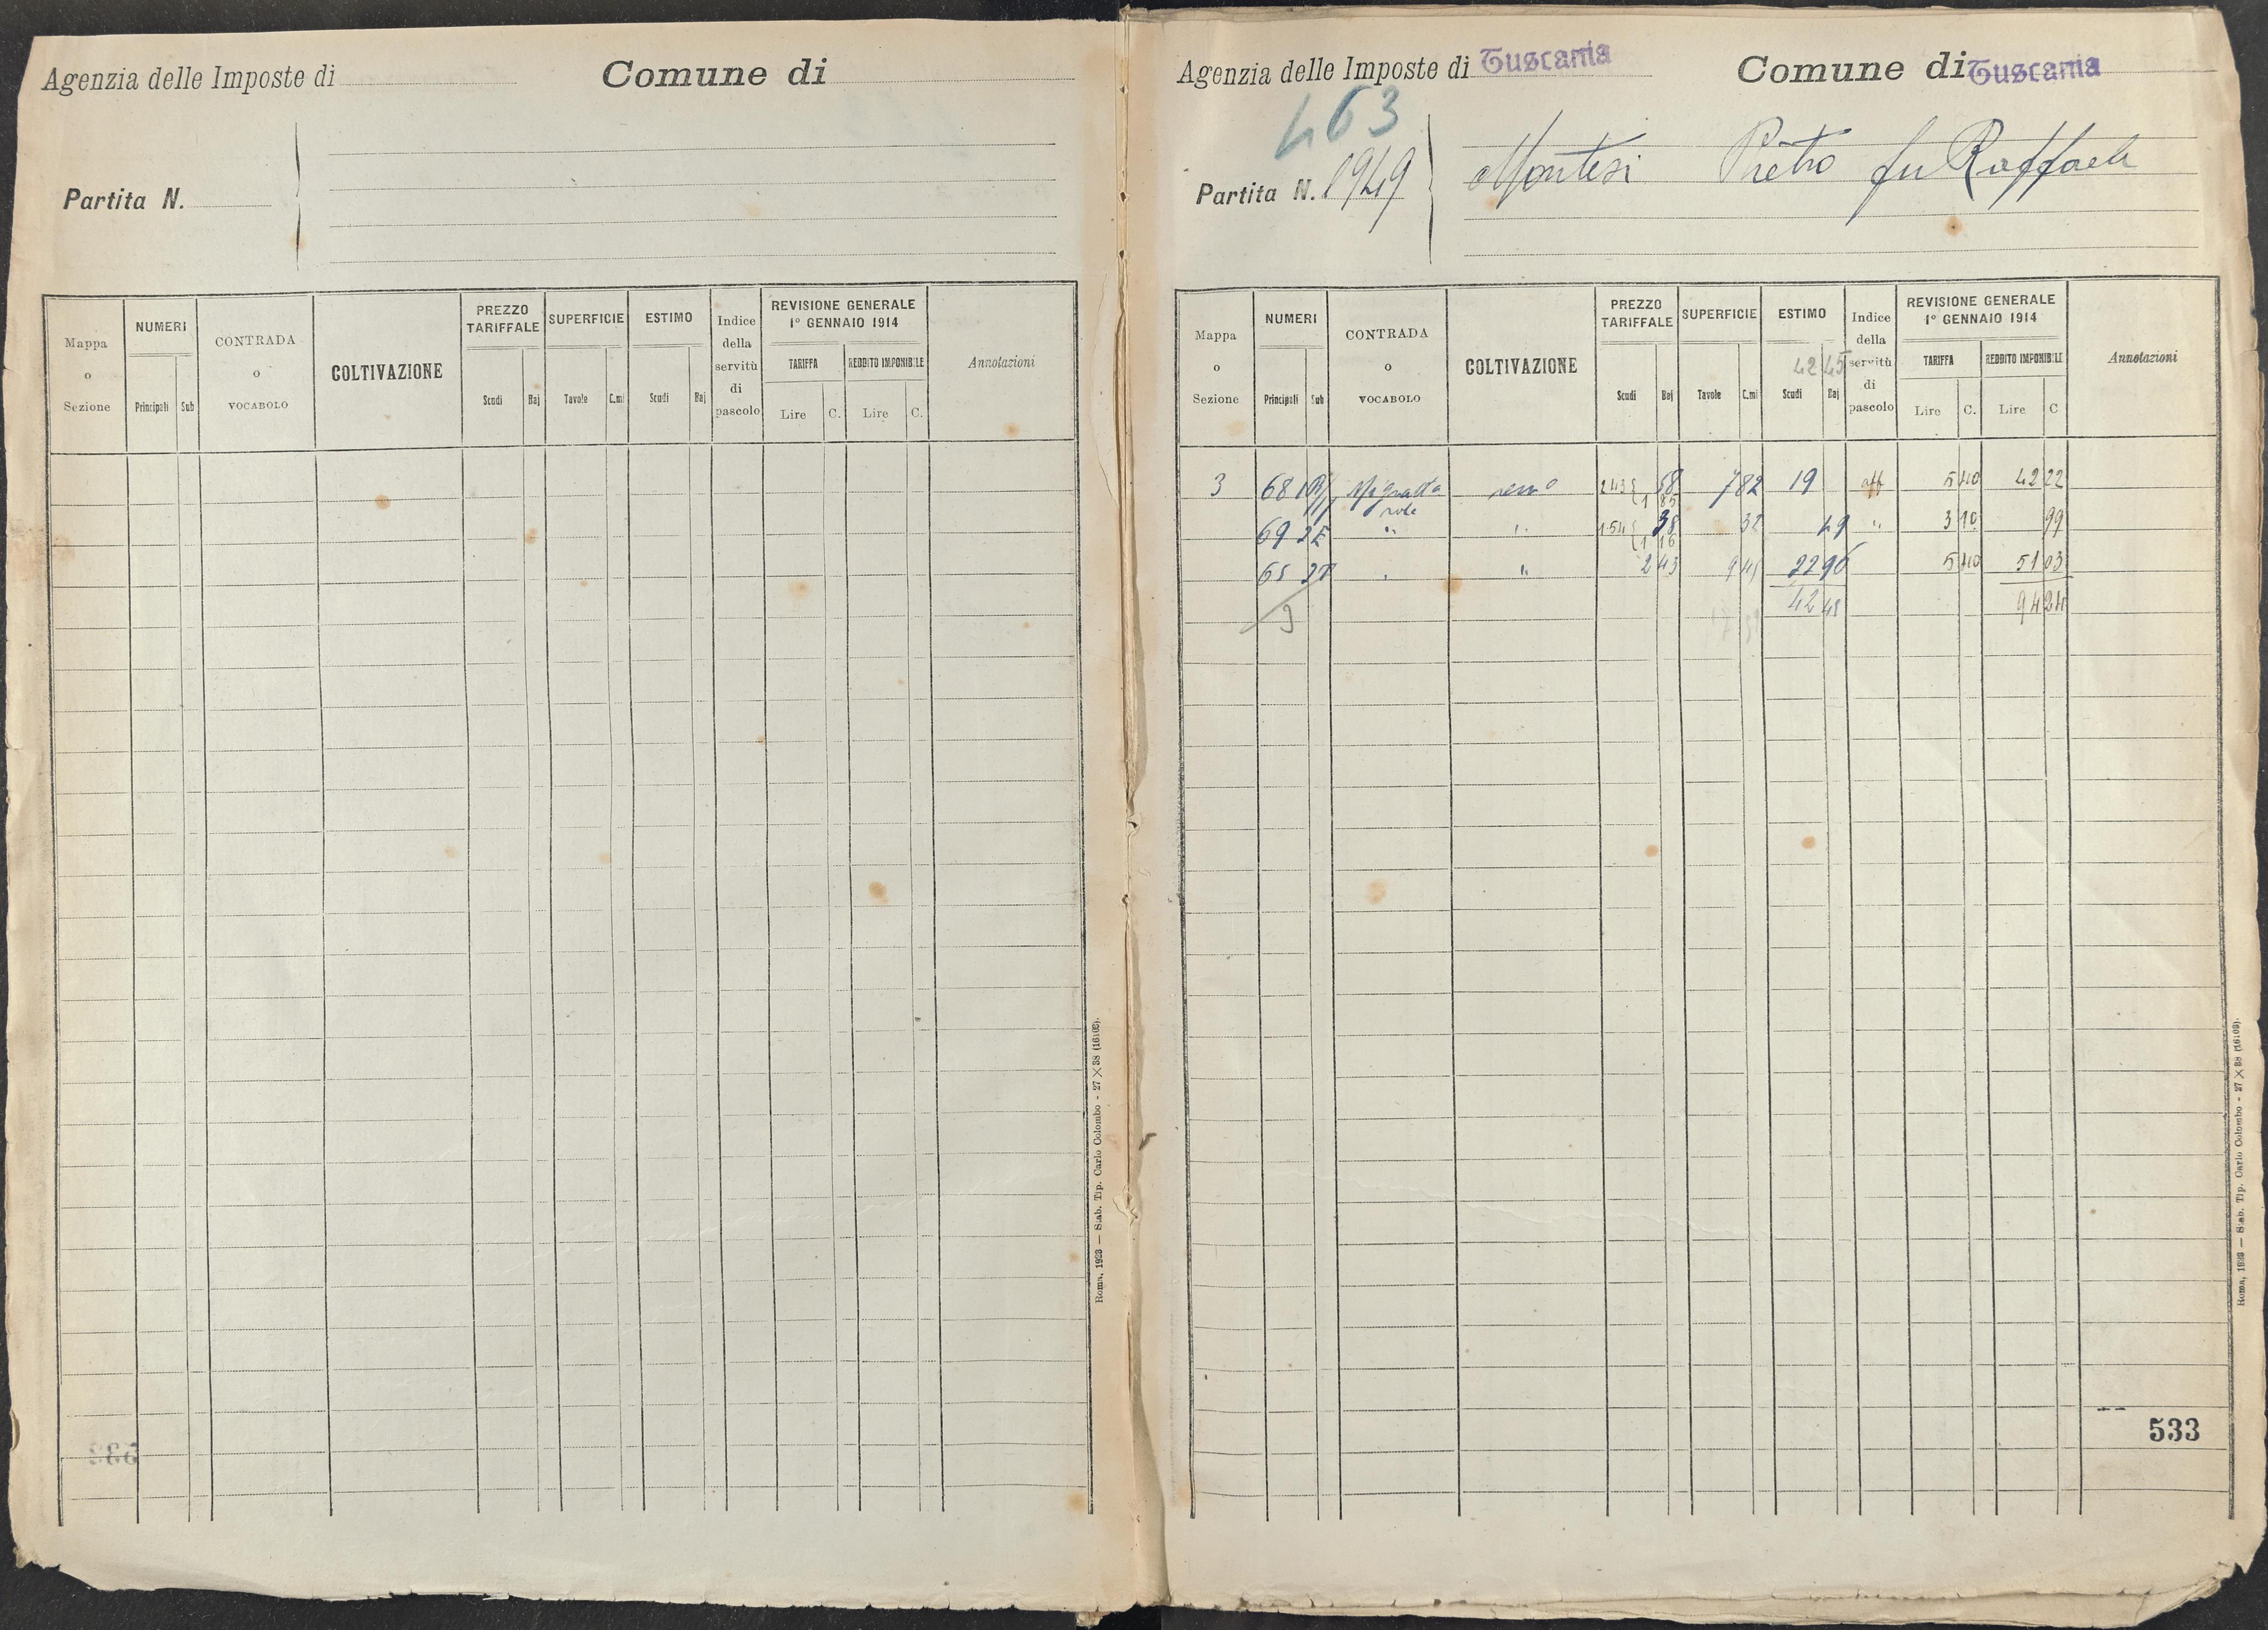 Agenzia delle Imposte di
Comune di
Partita N.
Mappa o Sezione
NUMERI
Principali Sub
CONTRADA o VOCABOLO
COLTIVAZIONE
PREZZO TARIFFALE
Scudi Baj
SUPERFICIE
Tavole C.mi
ESTIMO
Scudi Baj
Indice della servitù di pascolo
REVISIONE GENERALE
1° GENNAIO 1914
TARIFFA
Lire C.
REDDITO IMPONIBILE
Lire C.
Annotazioni
Roma, 1923 — Stab. Tip. Carlo Colombo - 27 × 38 (16103).
Agenzia delle Imposte di Tuscania
Comune di Tuscania
463
Partita N. 1949
Montesi Pietro fu Raffaele
Mappa o Sezione
NUMERI
Principali Sub
CONTRADA o VOCABOLO
COLTIVAZIONE
PREZZO TARIFFALE
Scudi Baj
SUPERFICIE
Tavole C.mi
ESTIMO
42 45
Scudi Baj
Indice della servitù di pascolo
REVISIONE GENERALE
1° GENNAIO 1914
TARIFFA
Lire C.
REDDITO IMPONIBILE
Lire C
Annotazioni
3 68 2 43 58 1 85 7 82 19 aff 5 40 42 22
69 " " 1 54 38 1 16 32 49 " 3 10 99
65 " " 2 43 9 45 22 96 5 40 51 03
3 42 45 94 24
533
Roma, 1923 — Stab. Tip. Carlo Colombo - 27 × 38 (16103).